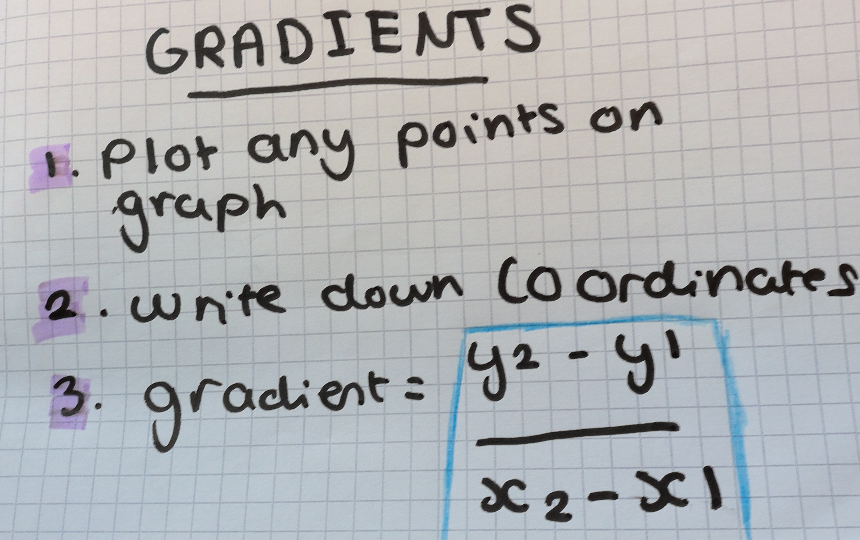 GRADIENTS
1. Plot any points on
graph
2. write down Coordinates
3. gradient = y2 - y1
x2 - x1